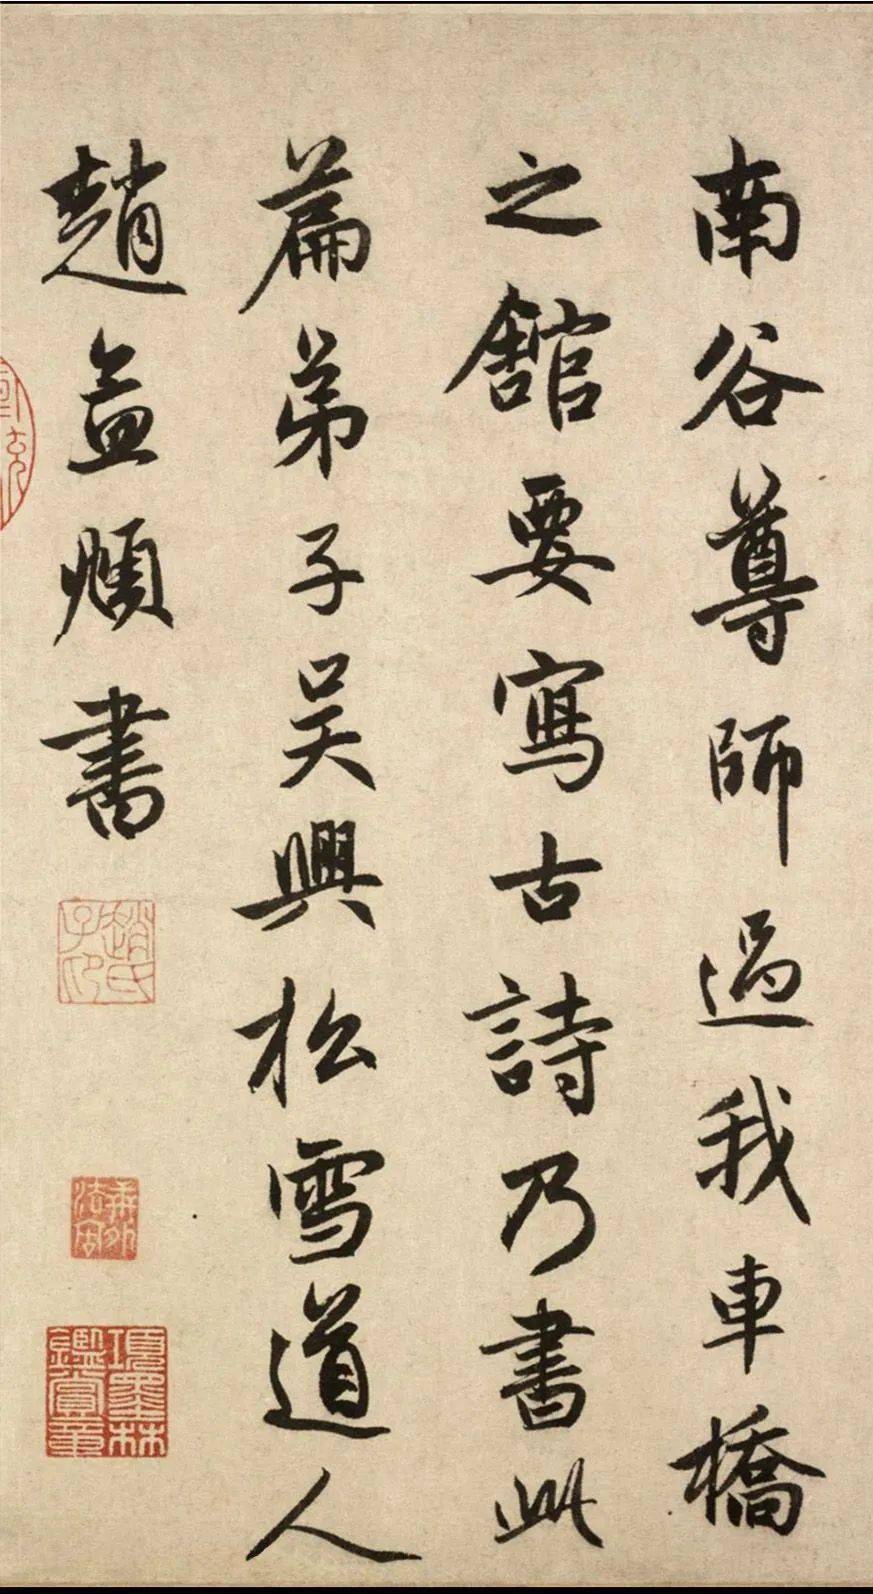 南谷尊師過我車橋
之舘要寫古詩乃書此
篇弟子吴興松雪道人
趙孟頫書
趙氏子印
項墨林鑑賞章